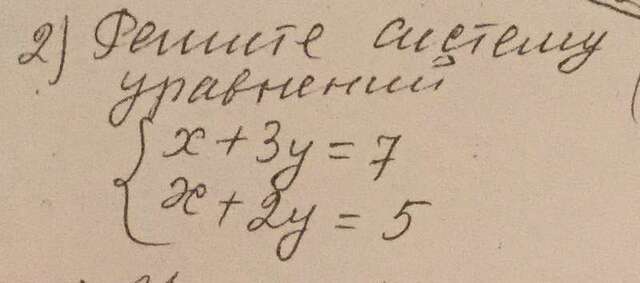 2) Решите систему
уравнений
{ x + 3y = 7
x + 2y = 5